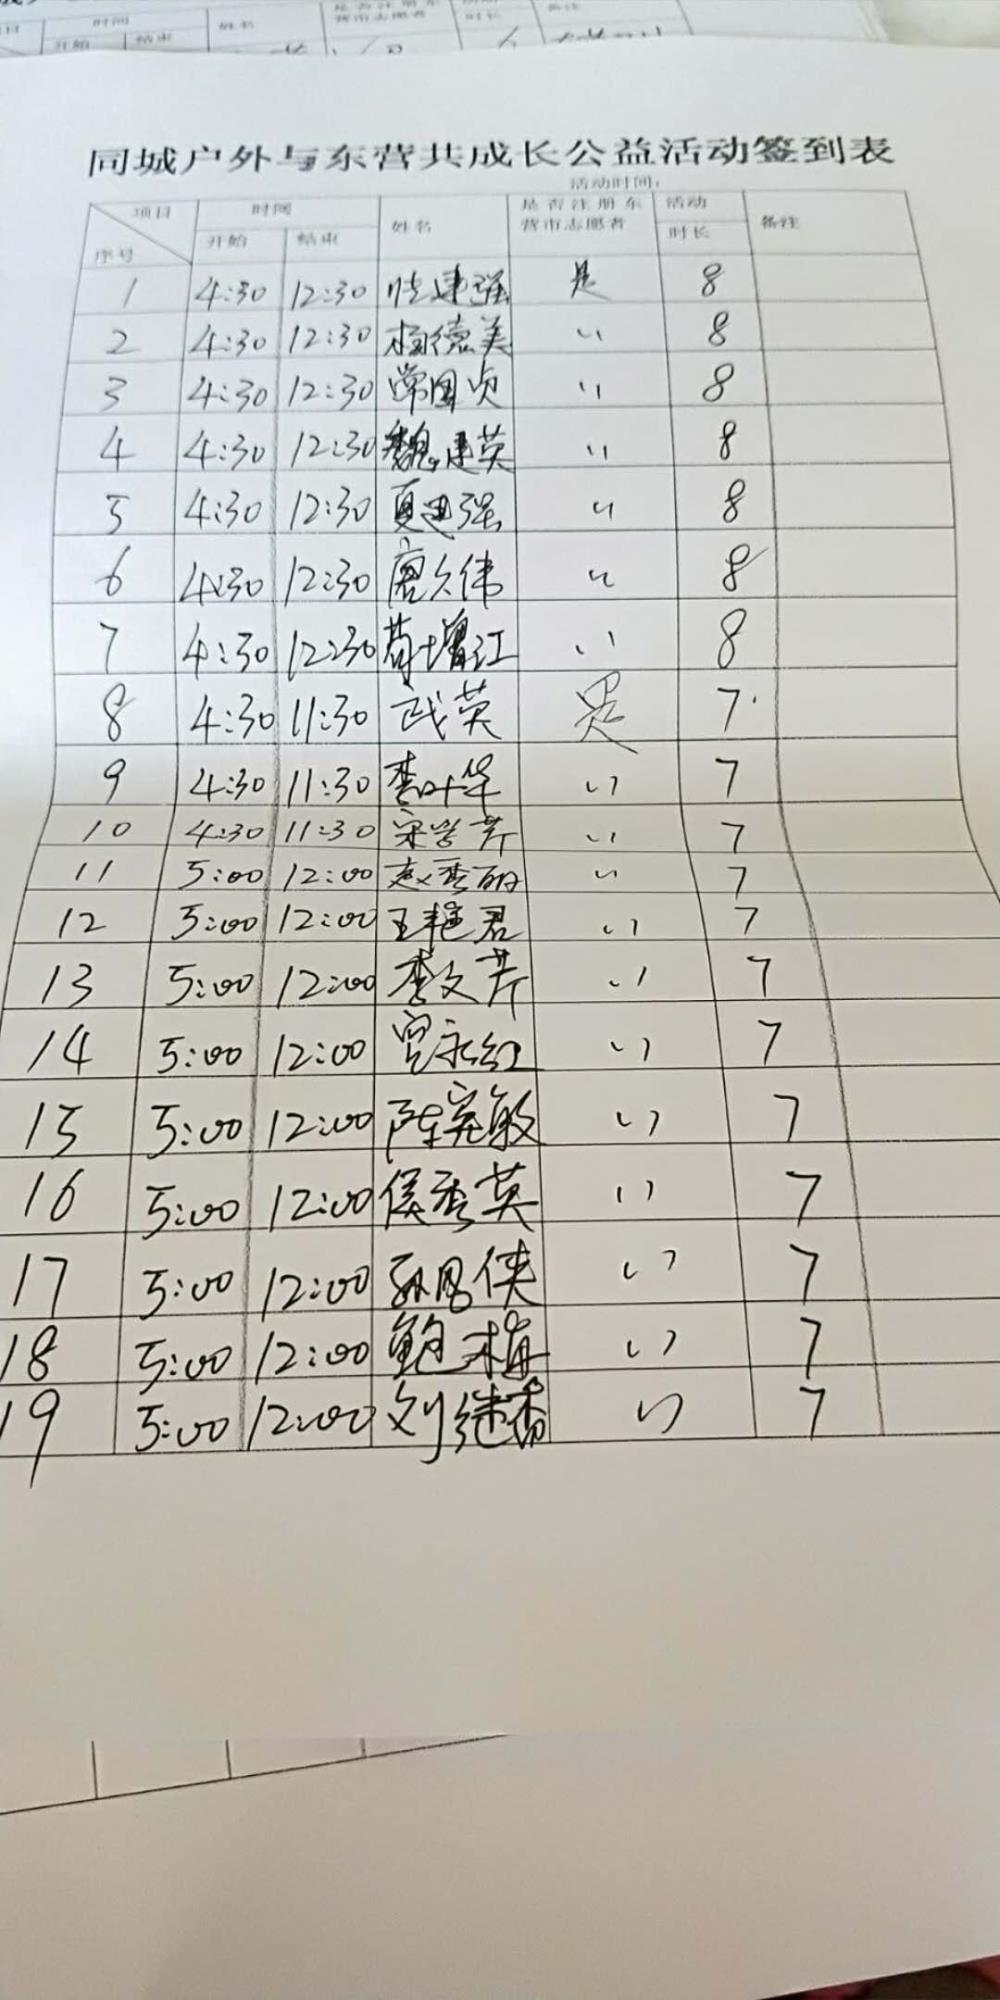 同城户外与东营共成长公益活动签到表
活动时间：
项目 时间 姓名 是否注册东营市志愿者 活动时长 备注
序号 开始 结束
1 4:30 12:30 建强 是 8
2 4:30 12:30 杨德美 〃 8
3 4:30 12:30 常国贞 〃 8
4 4:30 12:30 魏建英 〃 8
5 4:30 12:30 夏迎强 〃 8
6 4:30 12:30 唐久伟 〃 8
7 4:30 12:30 苟增江 〃 8
8 4:30 11:30 武英 是 7
9 4:30 11:30 李叶华 〃 7
10 4:30 11:30 宋学芹 〃 7
11 5:00 12:00 赵秀丽 〃 7
12 5:00 12:00 王艳君 〃 7
13 5:00 12:00 李文芹 〃 7
14 5:00 12:00 永红 〃 7
15 5:00 12:00 陈宪敏 〃 7
16 5:00 12:00 侯秀英 〃 7
17 5:00 12:00 孙凤侠 〃 7
18 5:00 12:00 鲍梅 〃 7
19 5:00 12:00 刘继香 〃 7